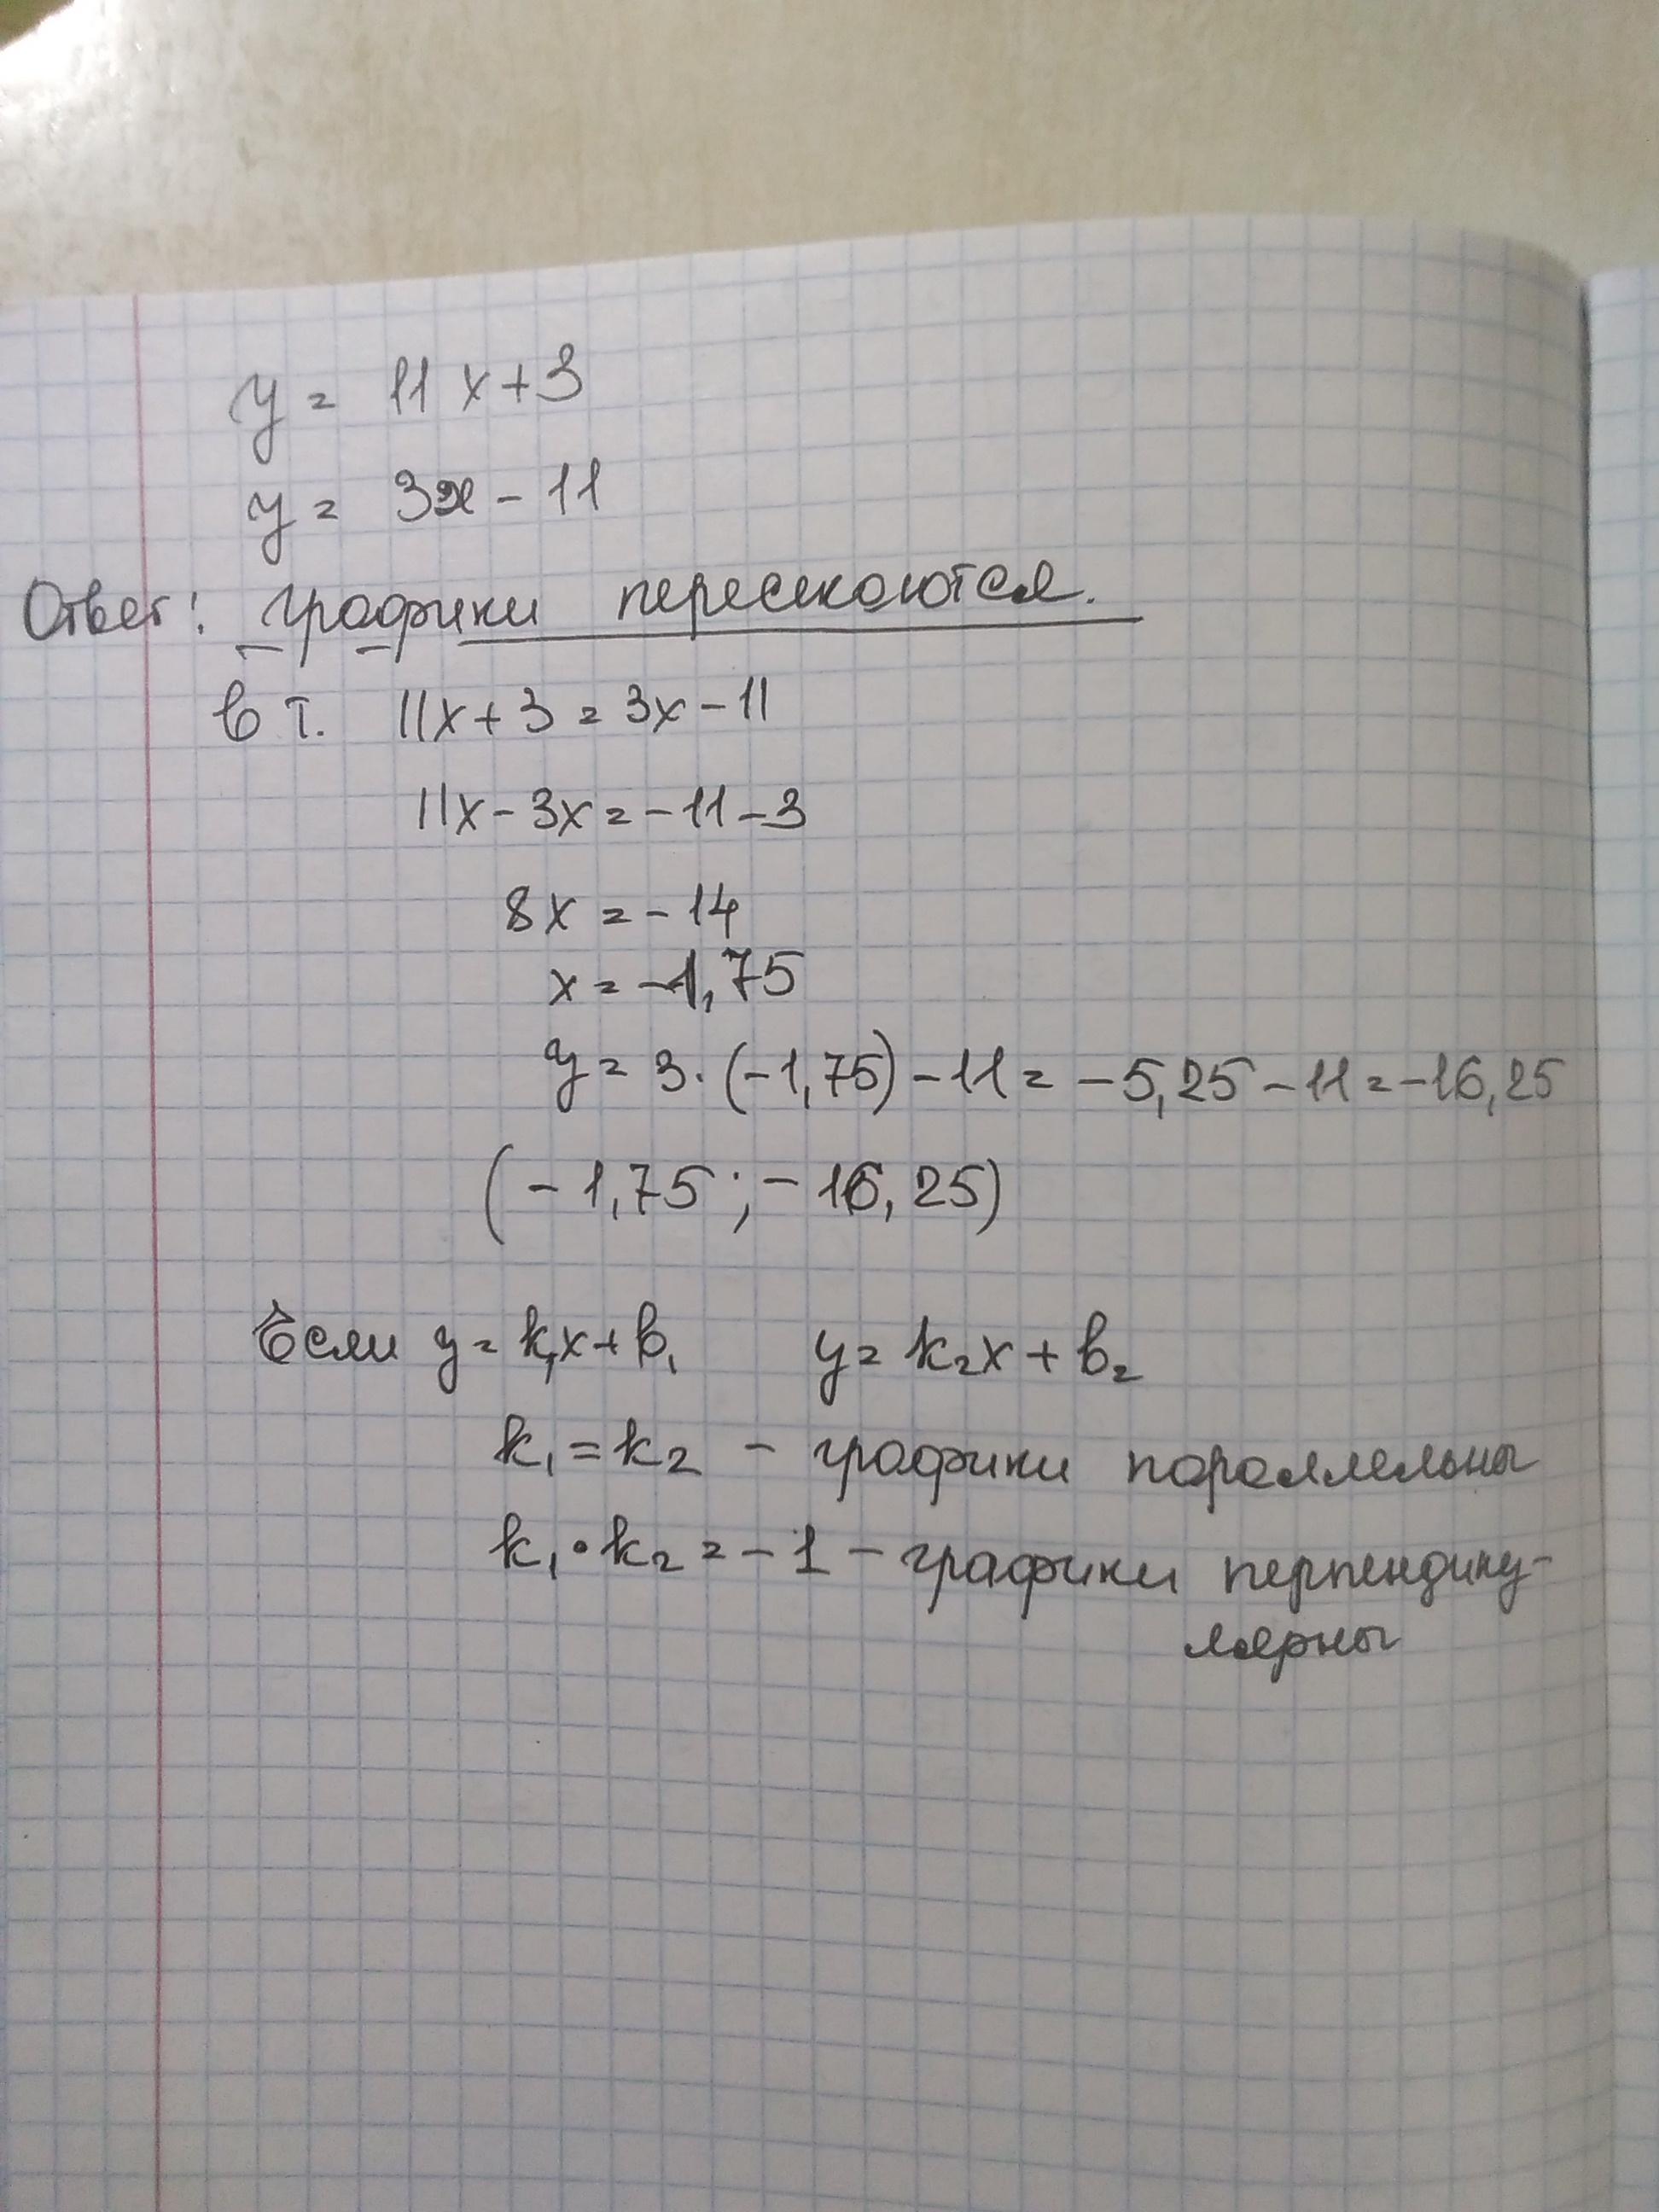 y = 11x+3
y = 3x - 11
Ответ: графики пересекаются.
в т. 11x+3 = 3x-11
11x - 3x = -11-3
8x = -14
x = -1,75
y = 3·(-1,75) - 11 = -5,25 - 11 = -16,25
(-1,75; -16,25)
Если y = k₁x + b₁ y = k₂x + b₂
k₁ = k₂ - графики параллельны
k₁·k₂ = -1 - графики перпендику-
лярны